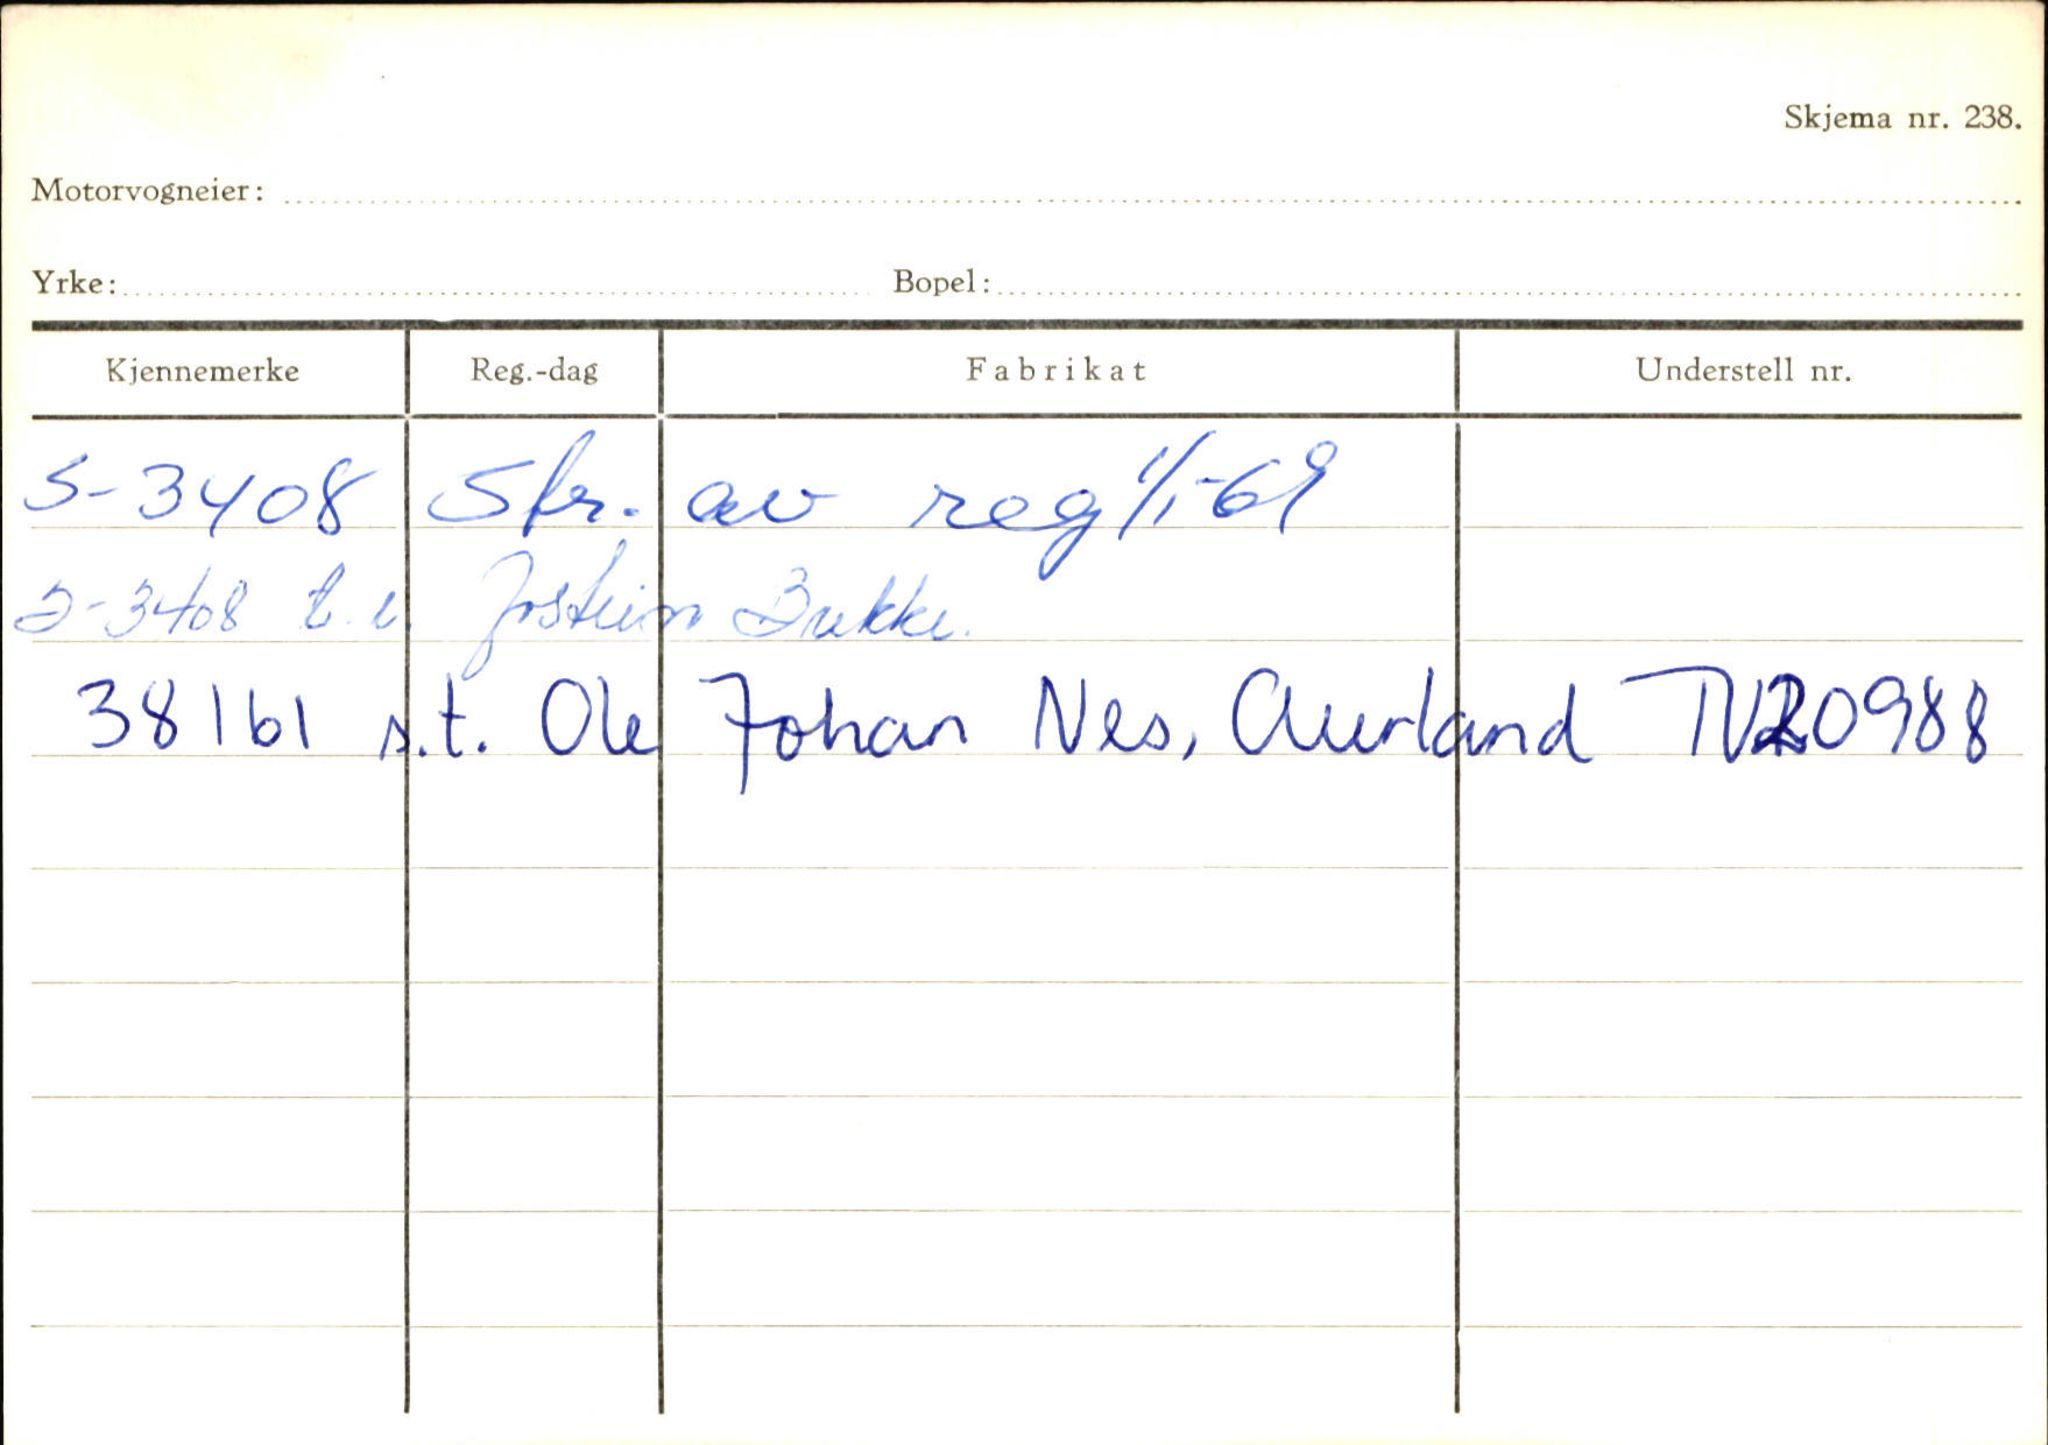 Skjema nr. 238.
Motorvogneier:
Yrke: Bopel:
Kjennemerke Reg.-dag Fabrikat Understell nr.
S-3408 Skr. av reg 1/1-69
S-3408 t. Jostein Brekke.
38161 s.t. Ole Johan Nes, Aurland TN20988